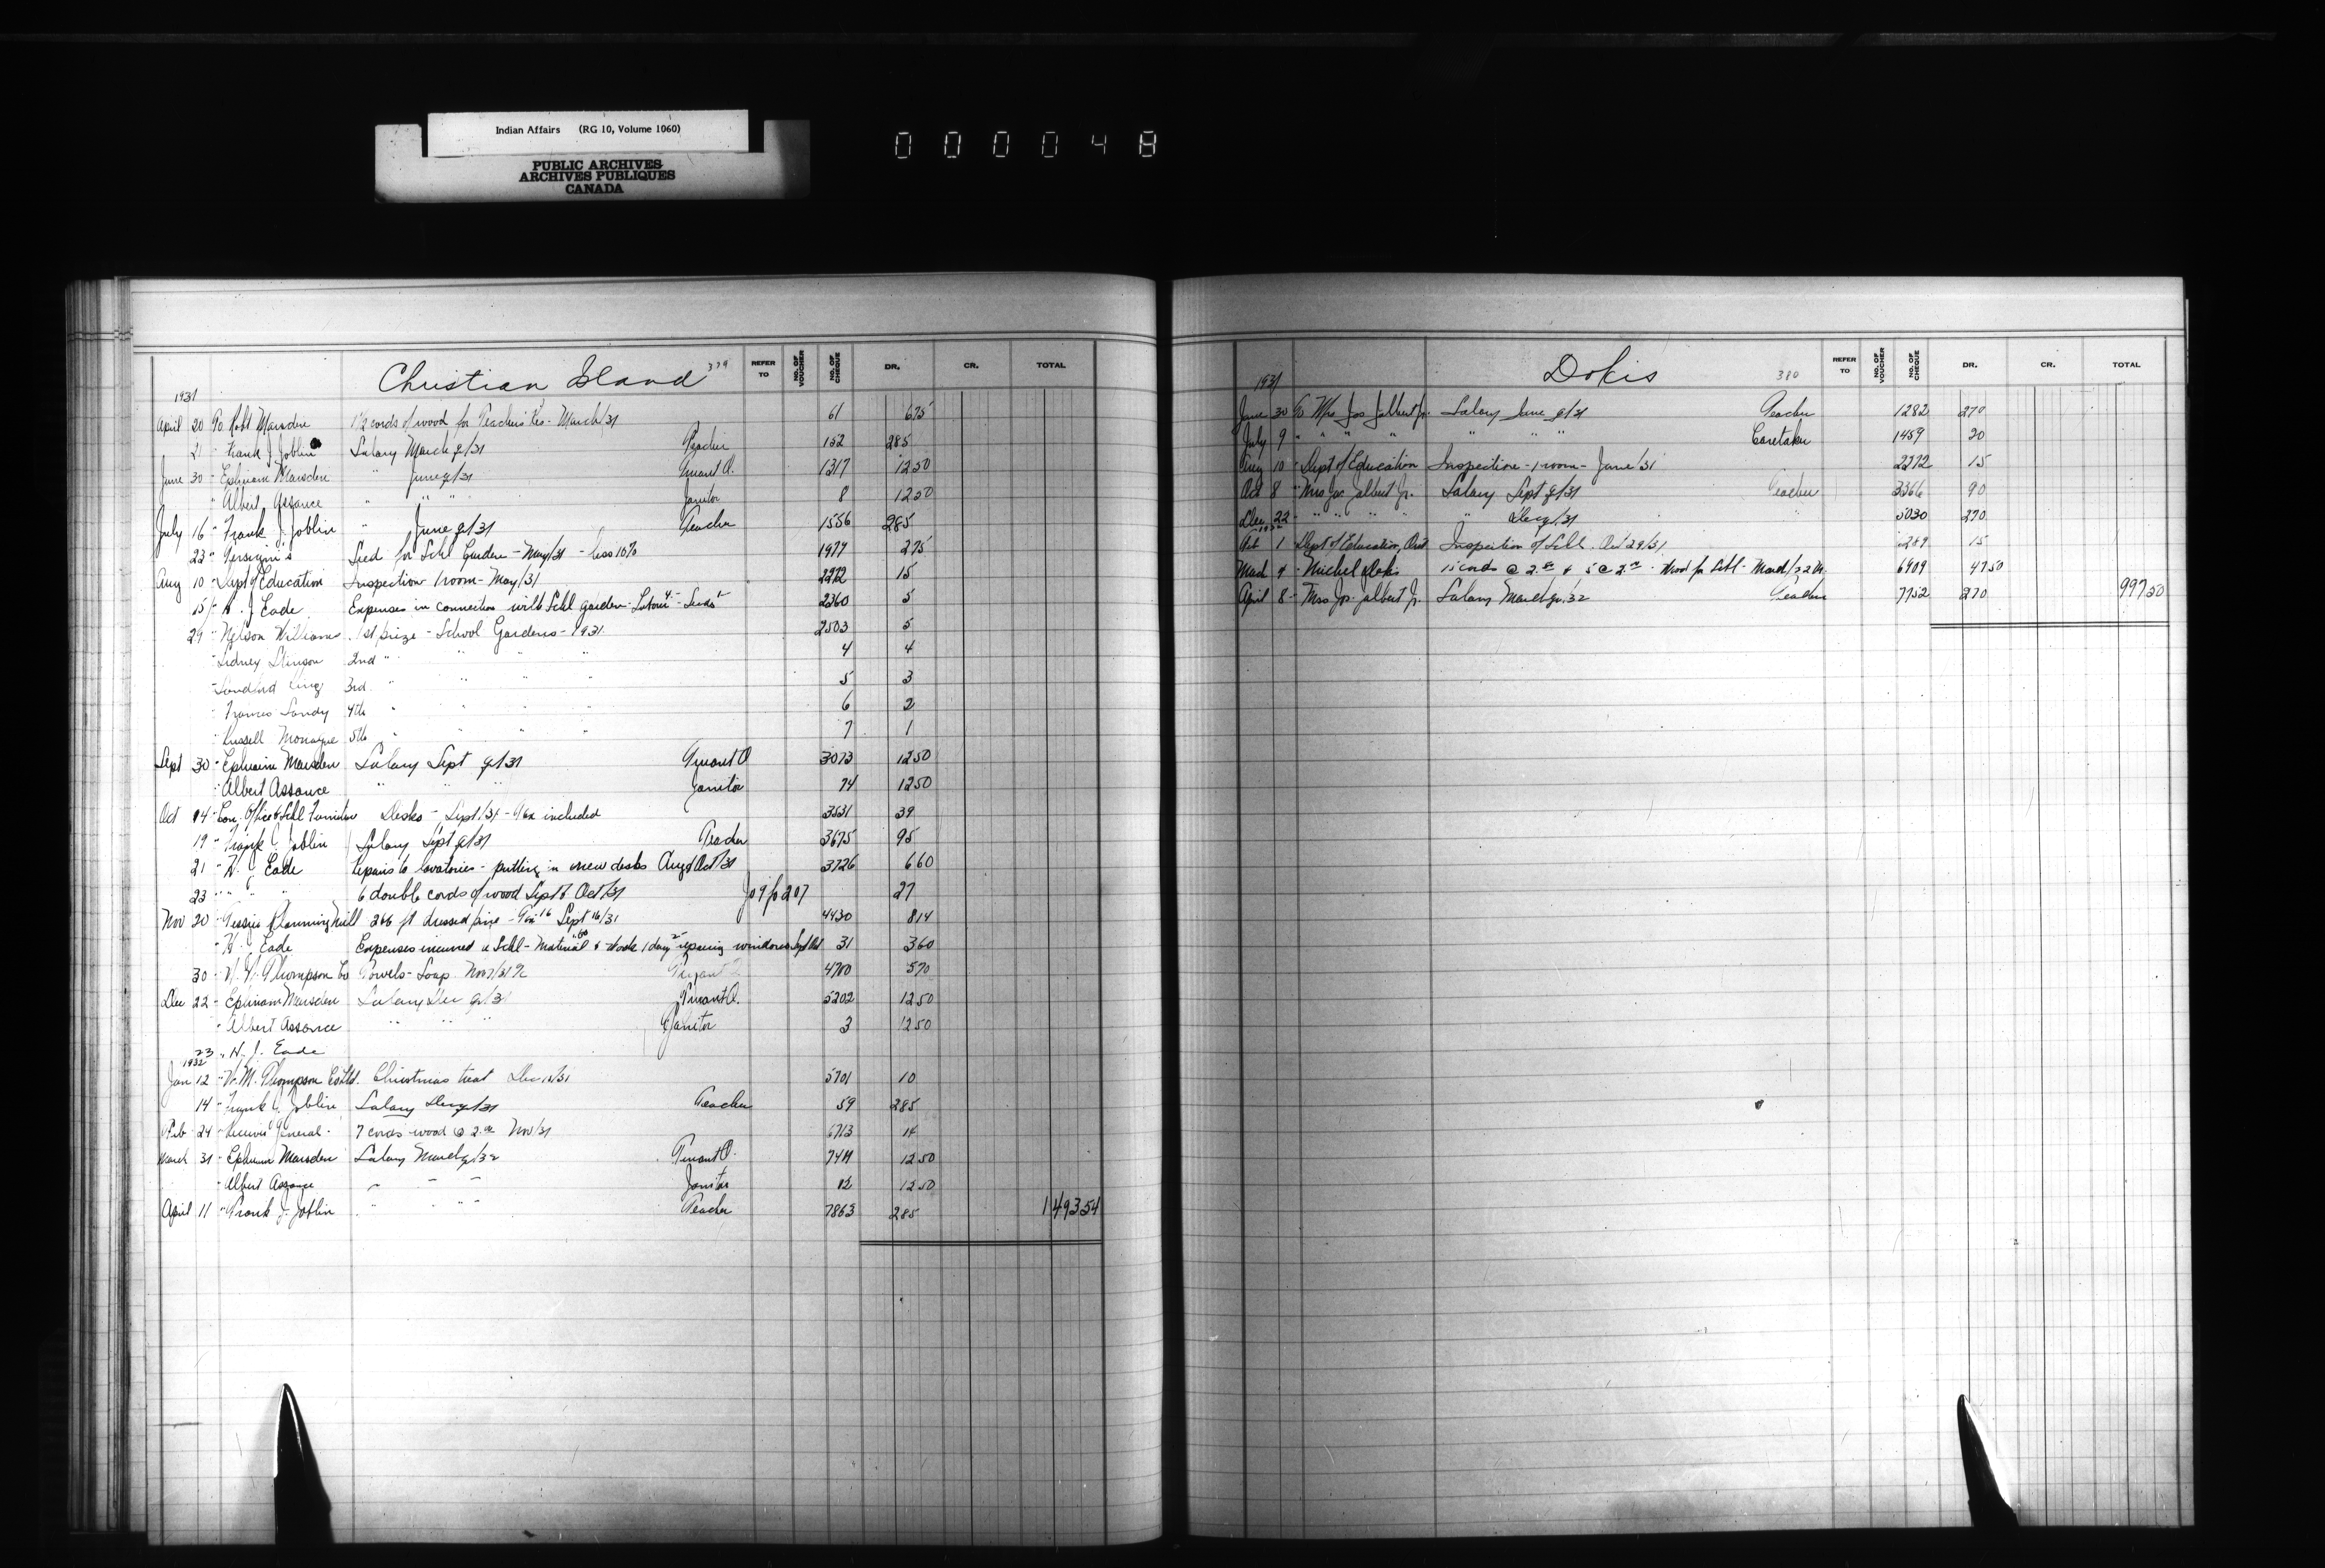 Indian Affairs (RG 10, Volume 1060)
PUBLIC ARCHIVES
ARCHIVES PUBLIQUES
CANADA
000048
Christian Island 379 REFER TO NO. OF VOUCHER NO. OF CHEQUE DR. CR. TOTAL
1931
April 20 To Robt Marsden 1½ cords of wood for Teacher's Res. March/31 61 6 75
21 " Frank J Joblin Salary March q/31 Teacher 152 285
June 30 " Ephraim Marsden " June q/31 Truant O. 1317 12 50
" Albert Assance " " " Janitor 8 12 50
July 16 " Frank J. Joblin " June q/31 Teacher 1556 285
23 " Seed for Schl Garden - May/31 - less 10% 1977 2 75
Aug 10 " Dept of Education Inspection 1 room - May/31 2272 15
15 " H. J. Eade Expenses in connection with Schl garden - Seeds 2360 5
29 " Nelson Williams 1st prize - School Gardens - 1931 2503 5
" Sidney Stinson 2nd " " " " 4 4
" Sandford King 3rd " " " " 5 3
" Frances Sandy 4th " " " " 6 2
" Russell Monague 5th " " " " 7 1
Sept 30 " Ephraim Marsden Salary Sept q/31 Truant O 3073 12 50
" Albert Assance " " " Janitor 74 12 50
Oct 14 " Can. Office & Schl Furniture Desks - Sept/31 - Tax included 3531 39
19 " Frank J. Joblin Salary Sept q/31 Teacher 3675 95
21 " H. J. Eade Repairs to lavatories - putting in new desks Aug & Oct/31 3726 6 60
23 " " " 6 double cords of wood Sept & Oct/31 Jo 9 fo 207 27
Nov 20 " Planning Mill 266 ft dressed pine - Tax 16 Sept 16/31 4430 8 14
" H. J. Eade Expenses incurred re Schl - Material & work 1 day repairing windows 31 3 60
30 " Thompson Co Towels - Soap Nov 7/31 4780 5 70
Dec 22 " Ephraim Marsden Salary Dec q/31 Truant O. 5202 12 50
" Albert Assance " " " Janitor 3 12 50
23 " H. J. Eade
1932
Jan 12 " Thompson Co Ltd. Christmas treat Dec /31 5701 10
14 " Frank J. Joblin Salary Dec q/31 Teacher 59 285
Feb 24 " Receiver General - 7 cords wood @ 2.00 Nov/31 6713 14
March 31 " Ephraim Marsden Salary March q/32 Truant O. 7411 12 50
" Albert Assance " " " Janitor 12 12 50
April 11 " Frank J. Joblin " " " Teacher 7863 285 1493 54
Dokis 380 REFER TO NO. OF VOUCHER NO. OF CHEQUE DR. CR. TOTAL
1931
June 30 To Mrs Jos Jalbert Jr. Salary June q/31 Teacher 1282 270
July 9 " " " " " " " Caretaker 1459 20
Aug 10 " Dept of Education Inspection - 1 room - June/31 2272 15
Oct 8 " Mrs Jos Jalbert Jr. Salary Sept q/31 Teacher 3366 90
Dec 22 " " " " " " Dec q/31 " 5030 270
1932
Feb 1 " Dept of Education, Ont Inspection of Schl. Oct 29/31 15
March 4 " Michel Dokis 15 cords @ 2.50 & 5 @ 2.00 - Wood for Schl - March/32 6909 47 50
April 8 " Mrs Jos. Jalbert Jr. Salary March q/32 Teacher 7752 270 997 50